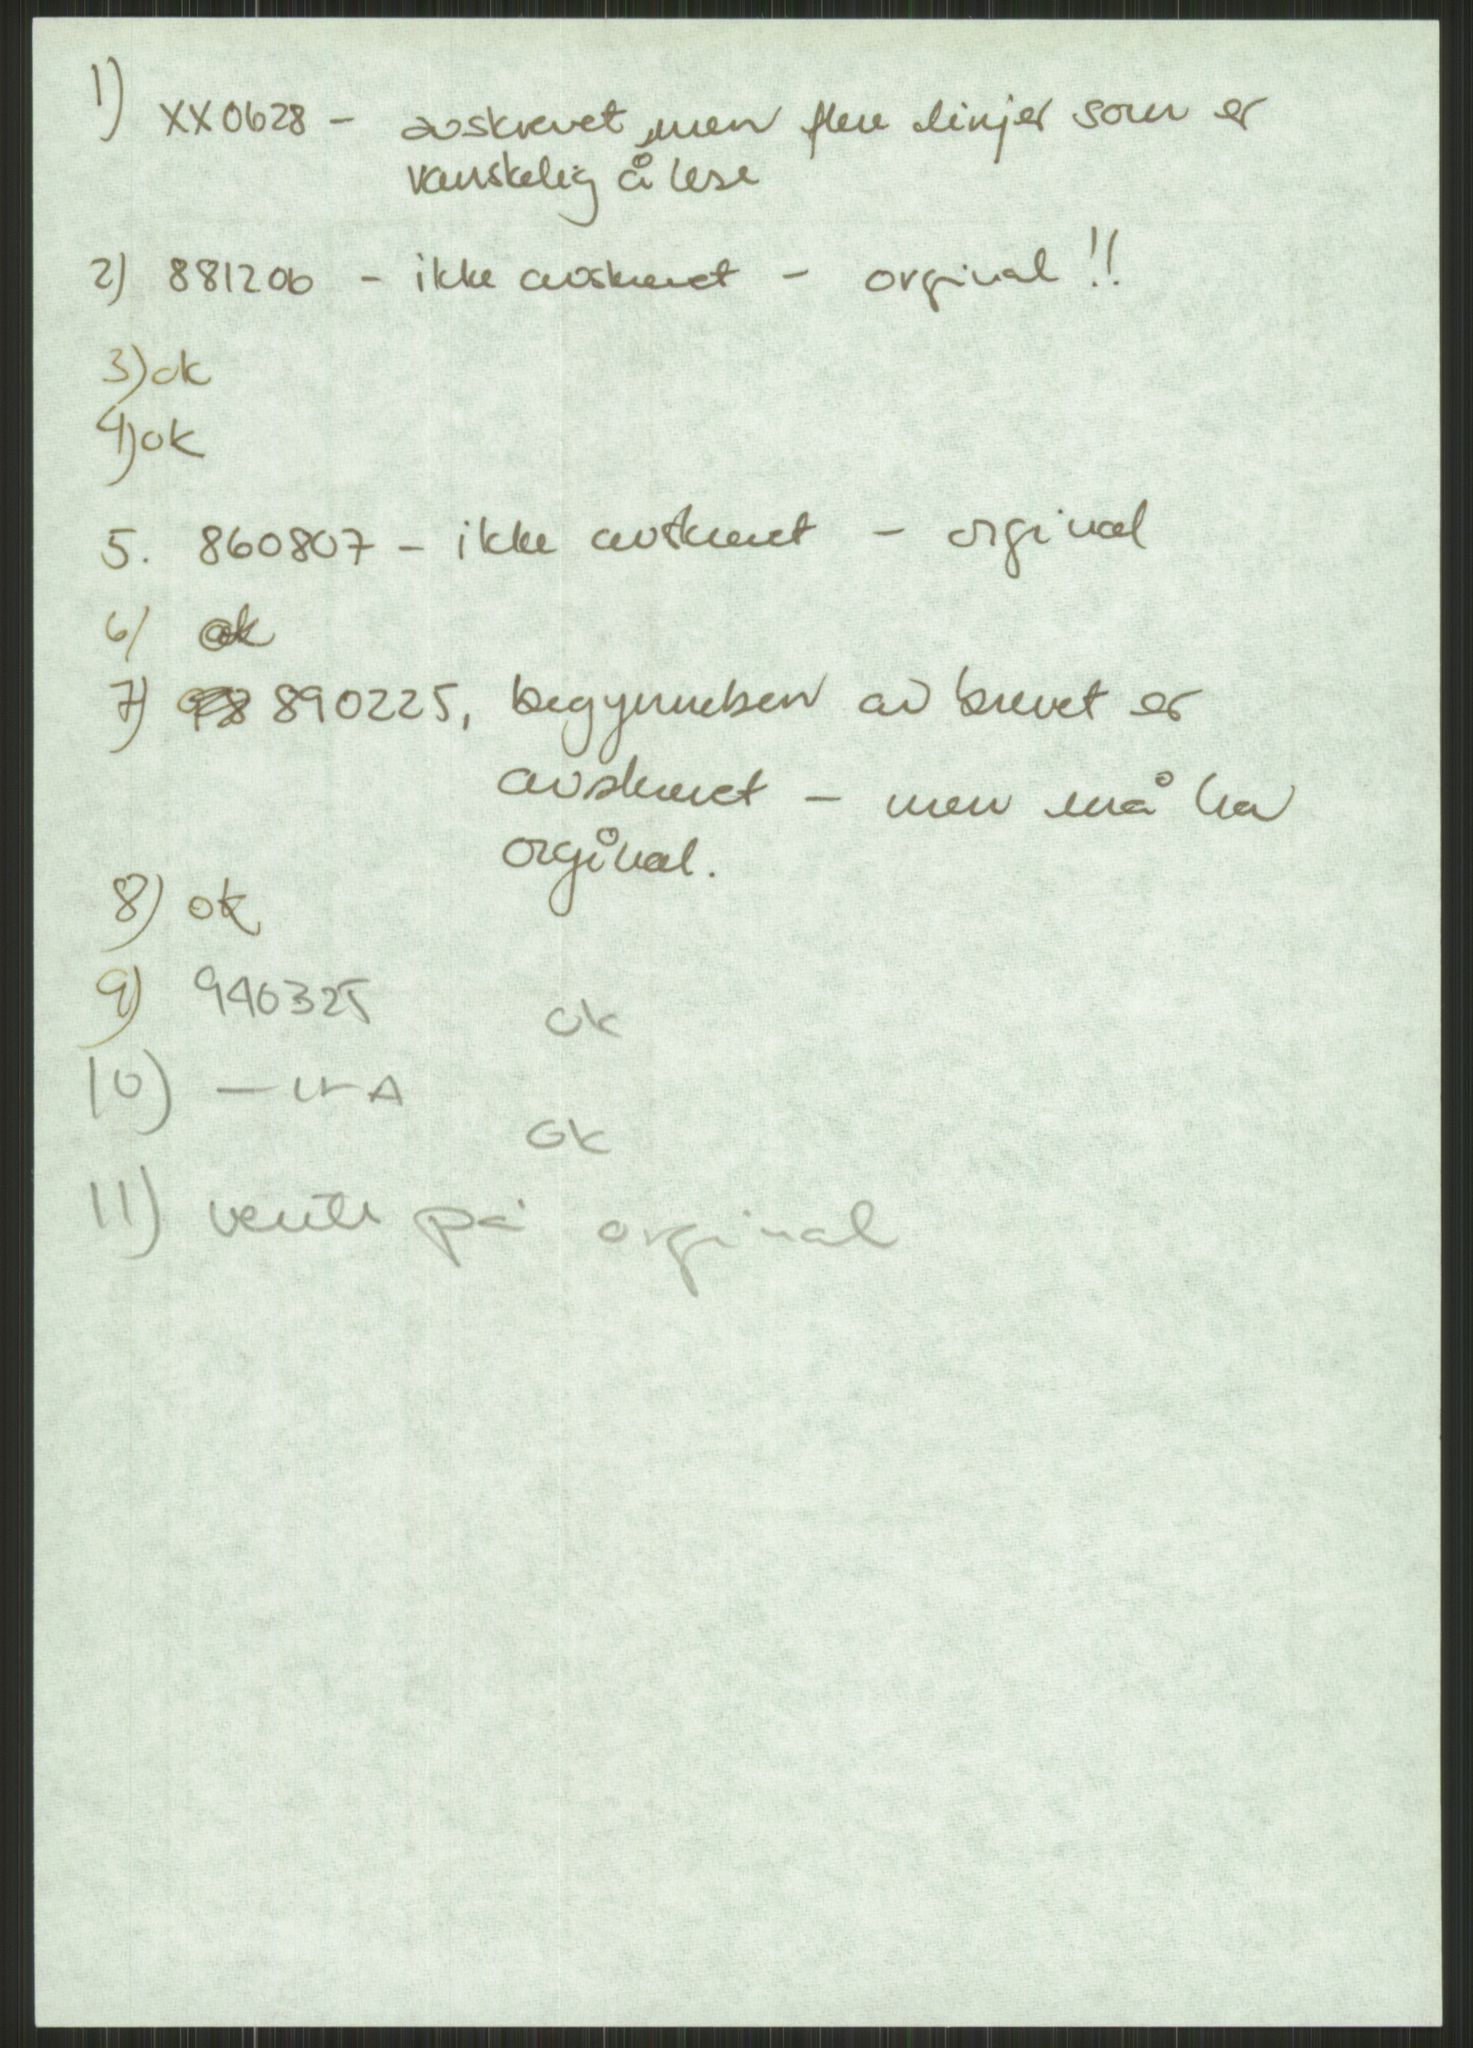 1) XX0628 - avskrevet, men flere linjer som er
vanskelig å lese
2) 881206 - ikke avskrevet - orginal !!
3) ok
4) ok
5. 860807 - ikke avskrevet - orginal
6) ok
7) 890225, begynnelsen av brevet er
avskrevet - men må ha
orginal.
8) ok
9) 940325 ok
10) ok
11) vente på orginal